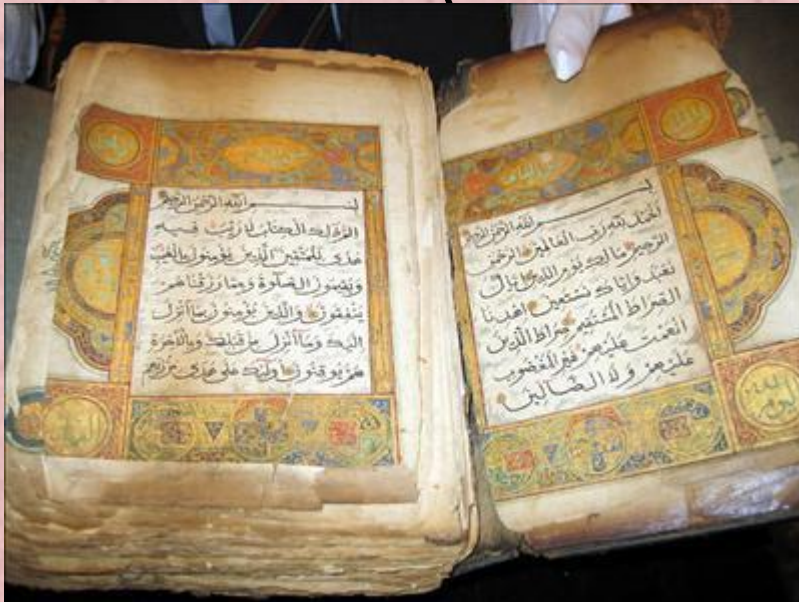 بسم الله الرحمن الرحيم
الحمد لله رب العالمين الرحمن
الرحيم مالك يوم الدين إياك
نعبد وإياك نستعين اهدنا
الصراط المستقيم صراط الذين
أنعمت عليهم غير المغضوب
عليهم ولا الضالين
بسم الله الرحمن الرحيم
الم ذلك الكتاب لا ريب فيه
هدى للمتقين الذين يؤمنون بالغيب
ويقيمون الصلوة ومما رزقناهم
ينفقون والذين يؤمنون بما أنزل
إليك وما أنزل من قبلك وبالآخرة
هم يوقنون أولئك على هدى من ربهم